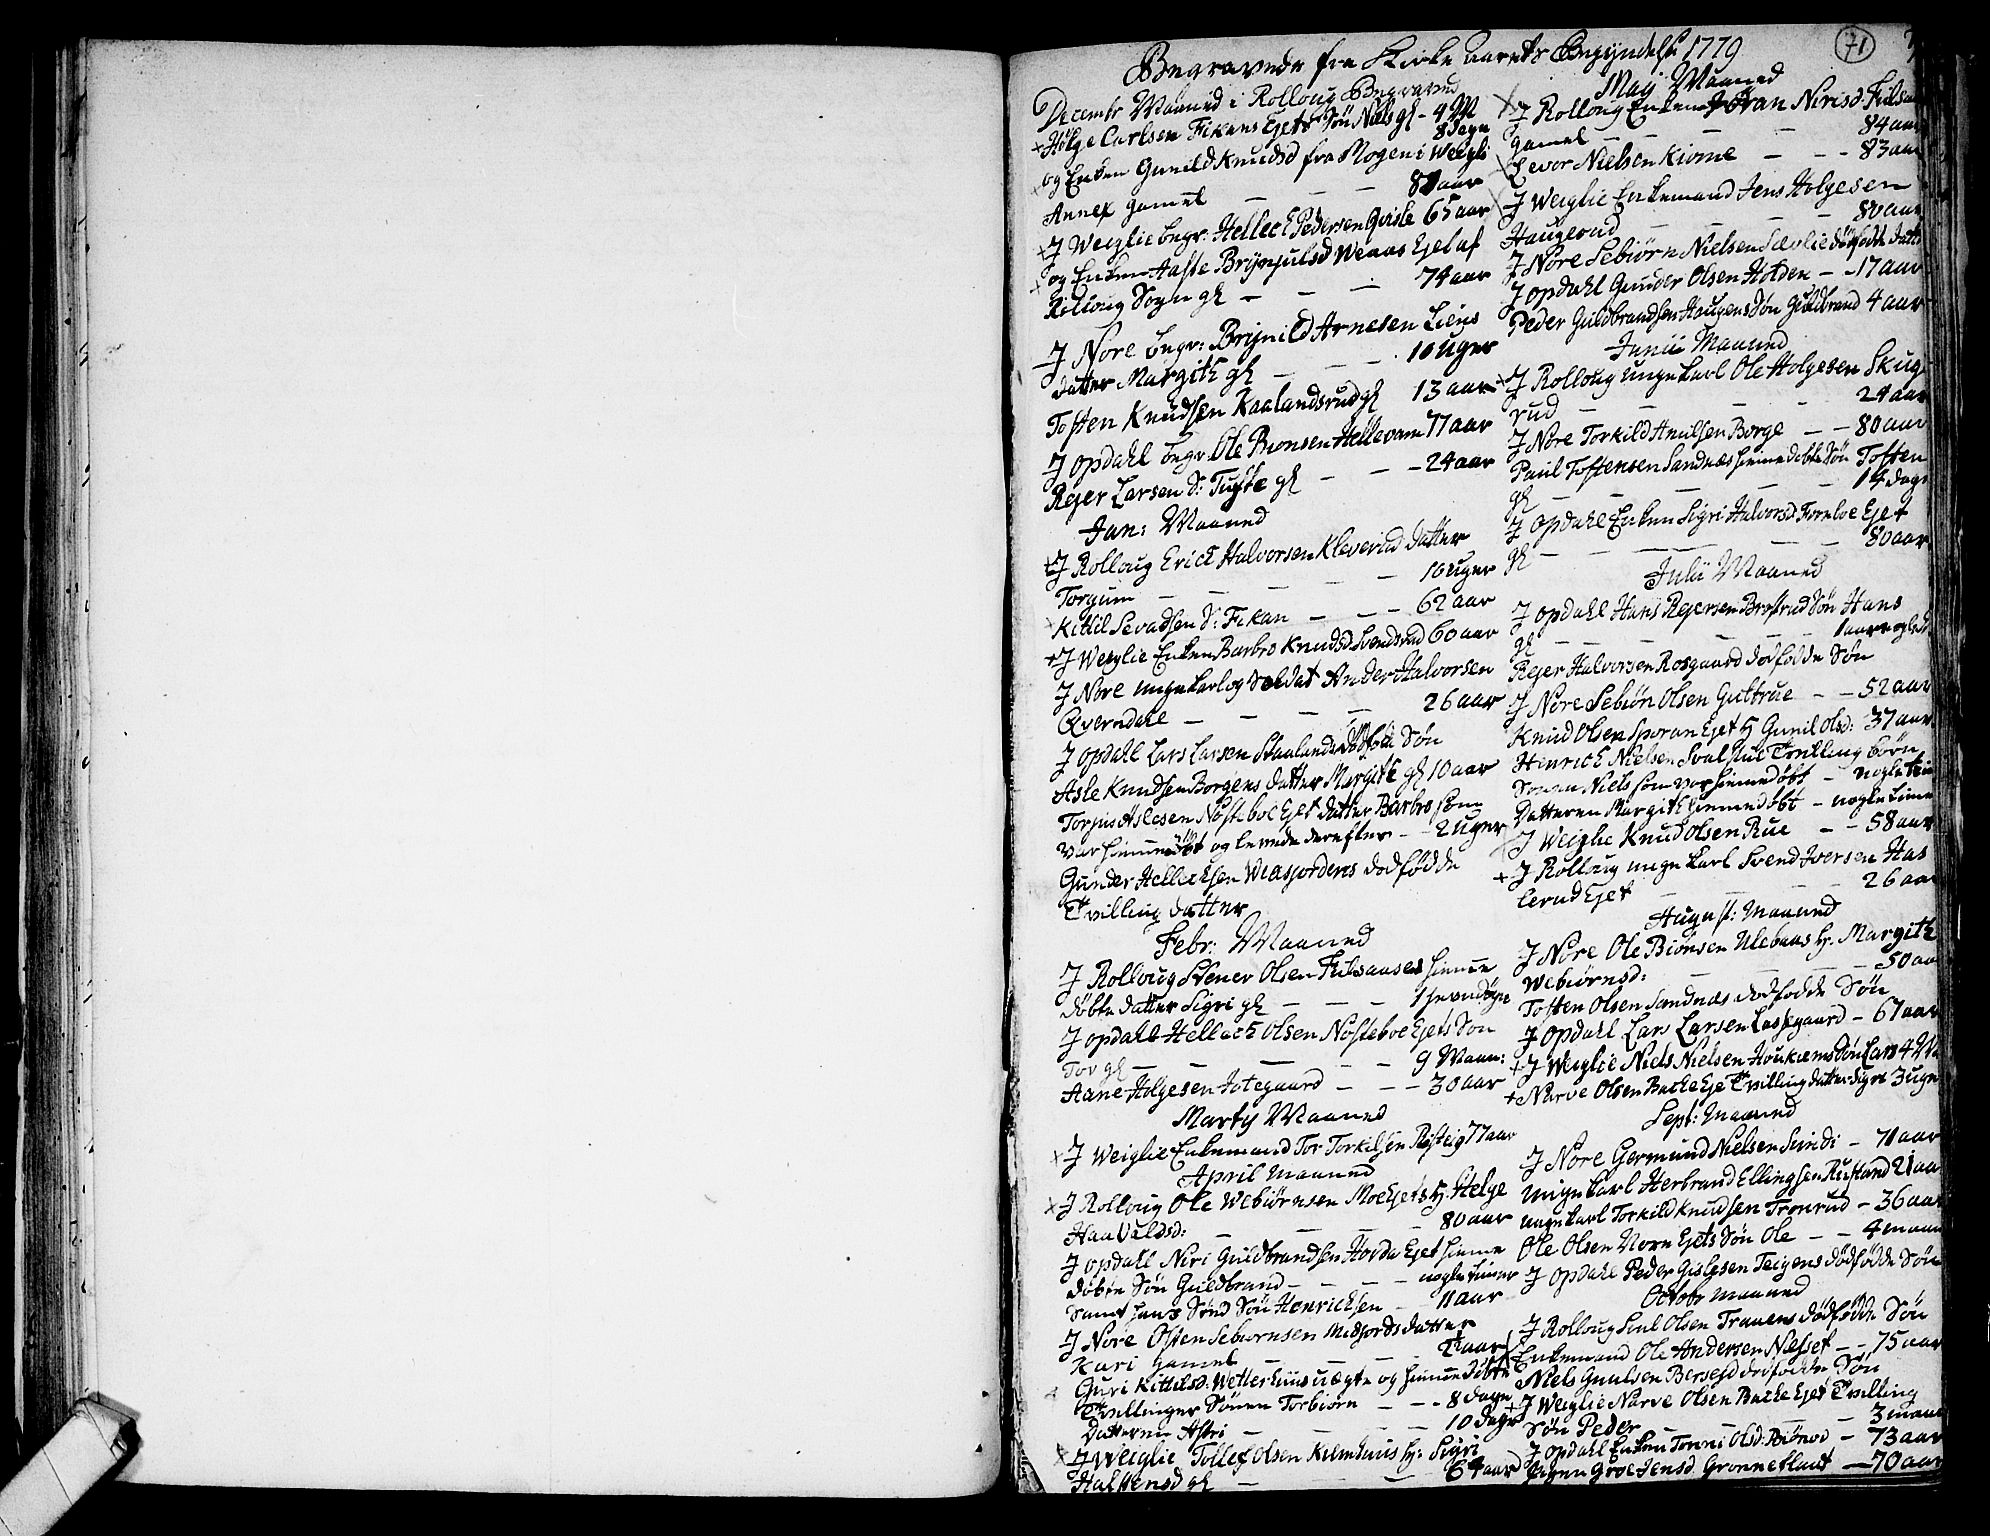 Begravede fra Kirke Aarets Begyndelse 1779
71
Decembr Maaned i Rolloug Begraved
Holge Carlsen Fikans Ejets Søn Niels gl - 4 M
8 dage
og Enken Gunild Knudsd fra Mogen i Weigli
Annex gamel — — — 80 aar
J Weiglie begr: Hellech Pedersen Qvisle 65 aar
og Enken Aaste Brynjulsd Weaas Ejet af
Rolloug Sogn gl — — — 74 aar
J Nore begr: Brynild Arnesen Liens
datter Margith gl — — 10 uger
Tosten Knudsen Kaalandsrud gl 13 aar
J Opdahl begr. Ole Bionsen Hellevam 77 aar
Rejer Larsen S: Tufte gl — — 24 aar
Jan: Maaned
J Rolloug Erich Halvorsen Kleverud datter
Torgum — — — — 10 uger
Kittil Sevadsen S: Fikan — — — 62 aar
J Weiglie Enken Barbro Knudsd Svendsrud 60 aar
J Nore unge karl og Soldat Ander Halvorsen
Qverndale — — — — 26 aar
J Opdahl Lars Larsen Skaalands dødfødde Søn
Asle Knudsen Borgens datter Margith gl 10 aar
Torjus Aslesen Nøsteboe Ejet datter Barbro som
var hiemmedøbt og levede derefter — 2 uger
Gunder Hellechsen Weasjordens dødfødde
Tvilling datter
Febr: Maaned
J Rolloug Stener Olsen Fulsaases hiemme
døbte datter Sigri gl — — — 1 jevndøgn
J Opdahl Hellech Olsen Nøsteboe Ejets Søn
Tor gl — — — — 9 Maan:
Aane Holgesen Jotegaard — — — 30 aar
Marty Maaned
J Weiglie Enkemand Tor Torkilsen Røsteig 77 aar
April Maaned
J Rolloug Ole Webiørnsen Moe Ejets H. Helge
Haavaldsd: — — — — 80 aar
J Opdahl Niri Guldbrandsen Horda Ejet hiemme
døbte Søn Guldbrand — — — nogle timer
samt hans Sønd Søn Henrichsen — 11 aar
J Nore Østen Sebiørnsen Midfjords datter
Kari gamel — — — — aar
Guri Kittilsd: Wetterhuus uægte og hiemmedøbte
Tvillinger Sønen Torbiørn — — — 8 dage
Datteren Astri — — — — 10 dage
J Weiglie Tollef Olsen Kulmhuus h: Sigri
Halstensd gl — — — 64 aar
Maij Maaned
J Rolloug Enken Jøran Nirisd. Fuls
gamel — — — — 84 aar
Levor Nielsen Kiome — — — 83 aar
J Weiglie Enkemand Jens Holgesen
Haugerud — — — — 80 aar
J Nore Sebiørn Nielsen Sevlie dødfødde datter
J Opdahl Gunder Olsen Holden — — 17 aar
Peder Guldbrandsen Haugens Søn Guldbrand 4 aar
Junii Maaned
J Rolloug unge karl Ole Holgesen Skuge
rud — — — — 24 aar
J Nore Torkild Anulsen Borge — — 80 aar
Paul Tostensen Sandnæs hiemedøbte Søn Tosten
gl — — — — 14 dage
J Opdahl Enken Sigri Halvorsd Fornloe Ejet
gl — — — — 80 aar
Julii Maaned
J Opdahl Hans Rejersen Brøstrud Søn Hans
gl — — — — 1 aar
Rejer Halvorsen Rosgaard dødfødde Søn
J Nore Sebiøn Olsen Guttrue — — 52 aar
Knud Olsen Sporan Ejet H Gunil Olsd: 37 aar
Henrich Nielsen Tvilling børn
Sønen Niels som var hiemedøbt — nogle timer
Datteren Margith hiemedøbt — nogle timer
J Weiglie Knud Olsen Rue — — 58 aar
J Rolloug unge karl Svend Iversen Has
lerud Ejet — — — — 26 aar
August: Maaned
J Nore Ole Biønsen Ulebaas h. Margith
Webiørnsd: — — — — 50 aar
Tosten Olsen Sandnæs dødfødde Søn
J Opdahl Lars Larsen Lassegaard — 67 aar
J Weiglie Niels Nielsen Houkæms Søn Lars 4 M
Narve Olsen Bakke Eje Tvilling datter Sigri 3 uger
Sept: Maaned
J Nore Germund Nielsen Simdi — 70 aar
unge karl Herbrand Ellingsen Rustand 21 aar
unge karl Torkild Knudsen Tronrud — 36 aar
Ole Olsen Norn Ejets Søn Ole — — 4 maan
J Opdahl Peder Gislesen Teigens dødfødde Søn
Octobr Maaned
J Rolloug Juul Olsen Traaens dødfødde Søn
Enkemand Ole Andersen Næsset — — 75 aar
Niels Gunlsen Bersejd dødfødde Søn
J Weiglie Narve Olsen Bakke Ejet Tvilling
Søn Peder — — — — 3 maan
J Opdahl Enken Tonni Olsd: Biønoe — 73 aar
Pigen Groe Jensd Grønneflaat — 70 aar